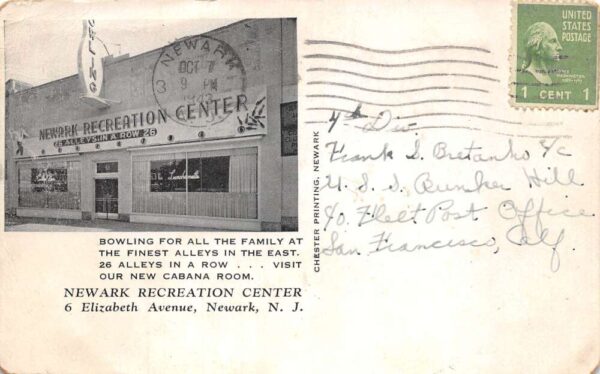 BOWLING
NEWARK RECREATION CENTER
26 ALLEYS IN A ROW 26
Luncheonette
NEWARK
OCT 7
9 PM
3
UNITED
STATES
POSTAGE
WASHINGTON
1 CENT 1
4th Div.
Frank S. Bretanko S/c
U. S. S. Bunker Hill
c/o Fleet Post Office
San Francisco, Calif.
CHESTER PRINTING, NEWARK
BOWLING FOR ALL THE FAMILY AT
THE FINEST ALLEYS IN THE EAST.
26 ALLEYS IN A ROW . . . VISIT
OUR NEW CABANA ROOM.
NEWARK RECREATION CENTER
6 Elizabeth Avenue, Newark, N. J.